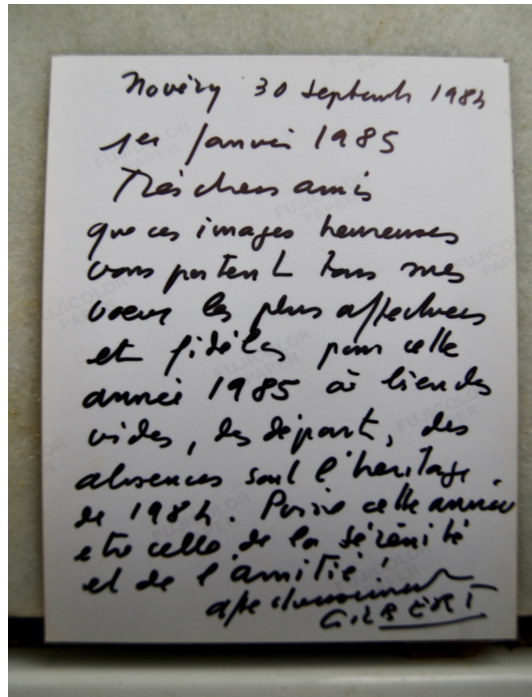 Novézy 30 septemb 1984
1er Janvier 1985
Très chers amis
que ces images heureuses
vous portent tous mes
voeux les plus affectueux
et fidèles pour cette
année 1985 où bien des
vides, des départs, des
absences sont l'héritage
de 1984. Puisse cette année
etre celle de la sérénité
et de l'amitié!
affectueusement
GILBERT
FUJICOLOR
PAPER